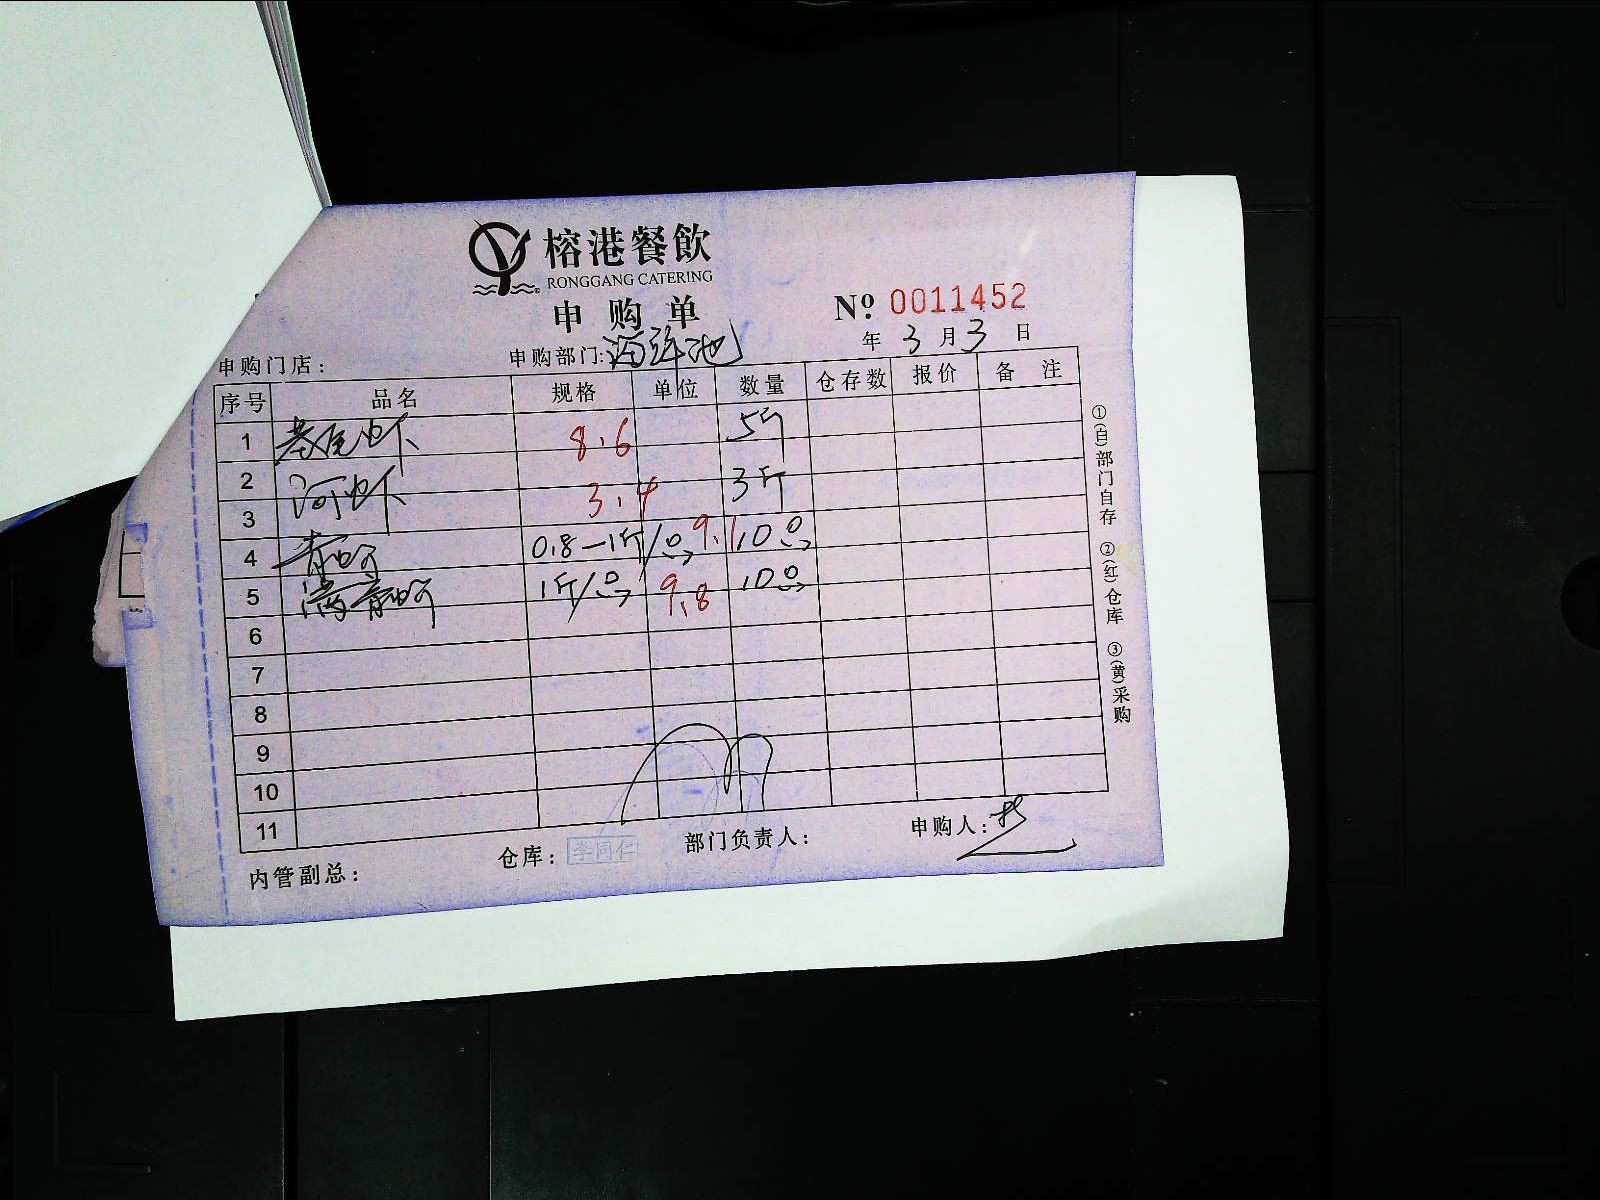 榕港餐飲
RONGGANG CATERING
申购单
№ 0011452
年 3 月 3 日
申购门店： 申购部门：海鲜池
序号 品名 规格 单位 数量 仓存数 报价 备注
1 基尾虾 8.6 5斤
2 河虾 3斤
3 3.4
4 青蚵 0.8—1斤/只 9.1 10只
5 满青蚵 1斤/只 9.8 10只
6
7
8
9
10
11
内管副总： 仓库： 李同仁 部门负责人： 申购人：
①(白)部门自存 ②(红)仓库 ③(黄)采购